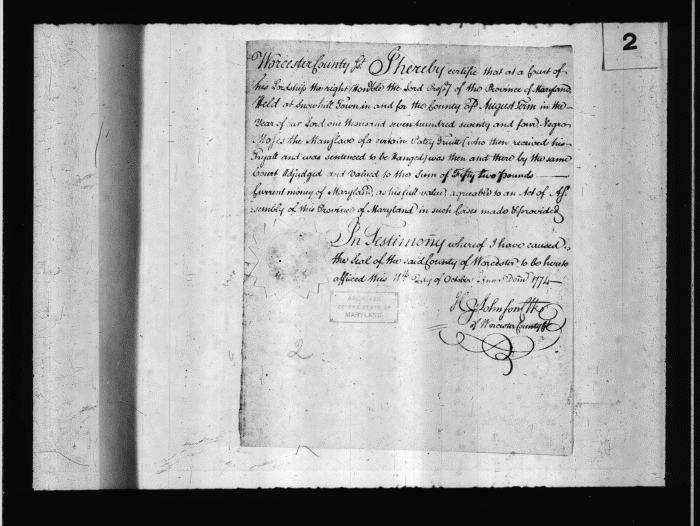 2
Worcester County Sct. I hereby certifie that at a Court of
his Lordship the right Honble the Lord Propry of the Province of Maryland
Held at Snowhill Town in and for the County afd August Term in the
Year of our Lord one thousand seven hundred seventy and four Negro
Moses the Manslave of a certain Patey Truitt (who then received his
Tryall and was sentenced to be Hanged) was then and there by the same
Court Adjudged and Valued to the Sum of Fifty two pounds
Current money of Maryland, as his full value, agreeable to an Act of As
sembly of this Province of Maryland in such Cases made & provided
In Testimony whereof I have caused
the Seal of the said County of Worcester to be hereto
afficed this day of October Anno Domi 1774
Johnson Clk
of Worcester County Ct
ARCHIVES
OF THE STATE OF
MARYLAND
2